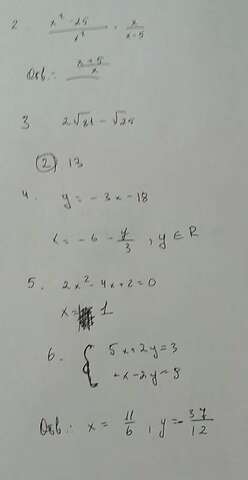 2. (x² - 25)/x² · x/(x-5)
Отв.: (x+5)/x
3 2√81 - √25
② 13
4. y = -3x - 18
x = -6 - y/3 , y ∈ R
5. 2x² - 4x + 2 = 0
x = 1
6. { 5x + 2y = 3
-x - 2y = 8
Отв.: x = 11/6 , y = -37/12